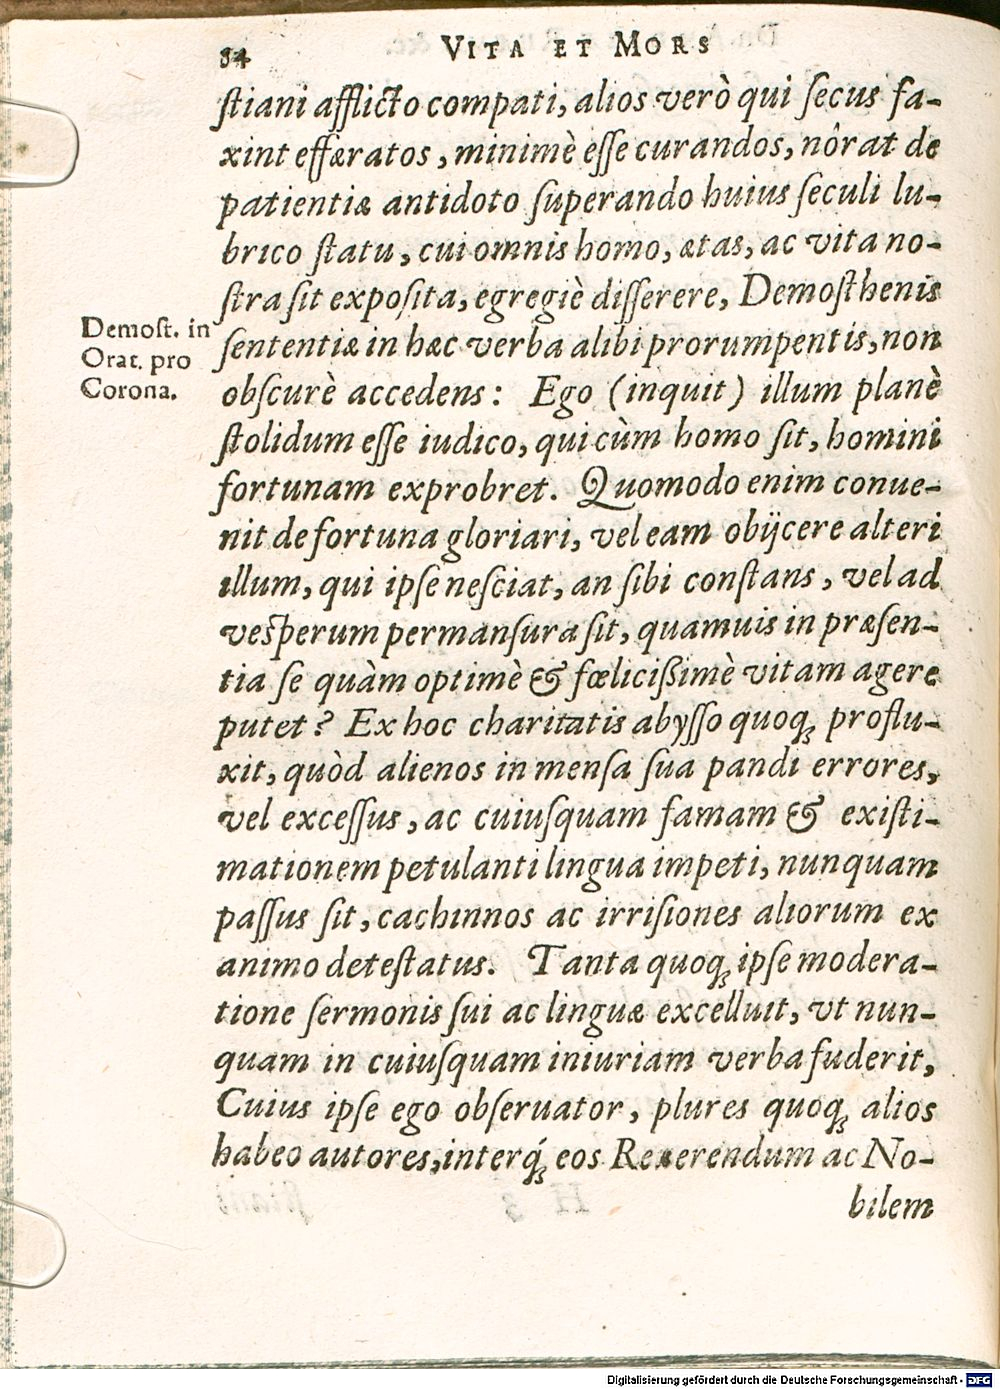 84 VITA ET MORS
ſtiani afflicto compati, alios verò qui ſecus fa-
xint efferatos, minimè eſſe curandos, nôrat de
patientiæ antidoto ſuperando huius ſeculi lu-
brico ſtatu, cui omnis homo, ætas, ac vita no-
ſtra ſit expoſita, egregiè diſſerere, Demoſthenis
Demoſt. in
Orat. pro
Corona.
ſententiæ in hæc verba alibi prorumpentis, non
obſcurè accedens: Ego (inquit) illum planè
ſtolidum eſſe iudico, qui cùm homo ſit, homini
fortunam exprobret. Quomodo enim conue-
nit de fortuna gloriari, vel eam obijcere alteri
illum, qui ipſe neſciat, an ſibi conſtans, vel ad
veſperum permanſura ſit, quamuis in præſen-
tia ſe quàm optimè & fœliciſsimè vitam agere
putet? Ex hoc charitatis abyſſo quoq; proflu-
xit, quòd alienos in menſa ſua pandi errores,
vel exceſſus, ac cuiuſquam famam & exiſti-
mationem petulanti lingua impeti, nunquam
paſſus ſit, cachinnos ac irriſiones aliorum ex
animo deteſtatus. Tanta quoq; ipſe modera-
tione ſermonis ſui ac linguæ excelluit, vt nun-
quam in cuiuſquam iniuriam verba fuderit,
Cuius ipſe ego obſeruator, plures quoq; alios
habeo autores, interq́; eos Reuerendum ac No-
bilem
Digitalisierung gefördert durch die Deutsche Forschungsgemeinschaft - DFG